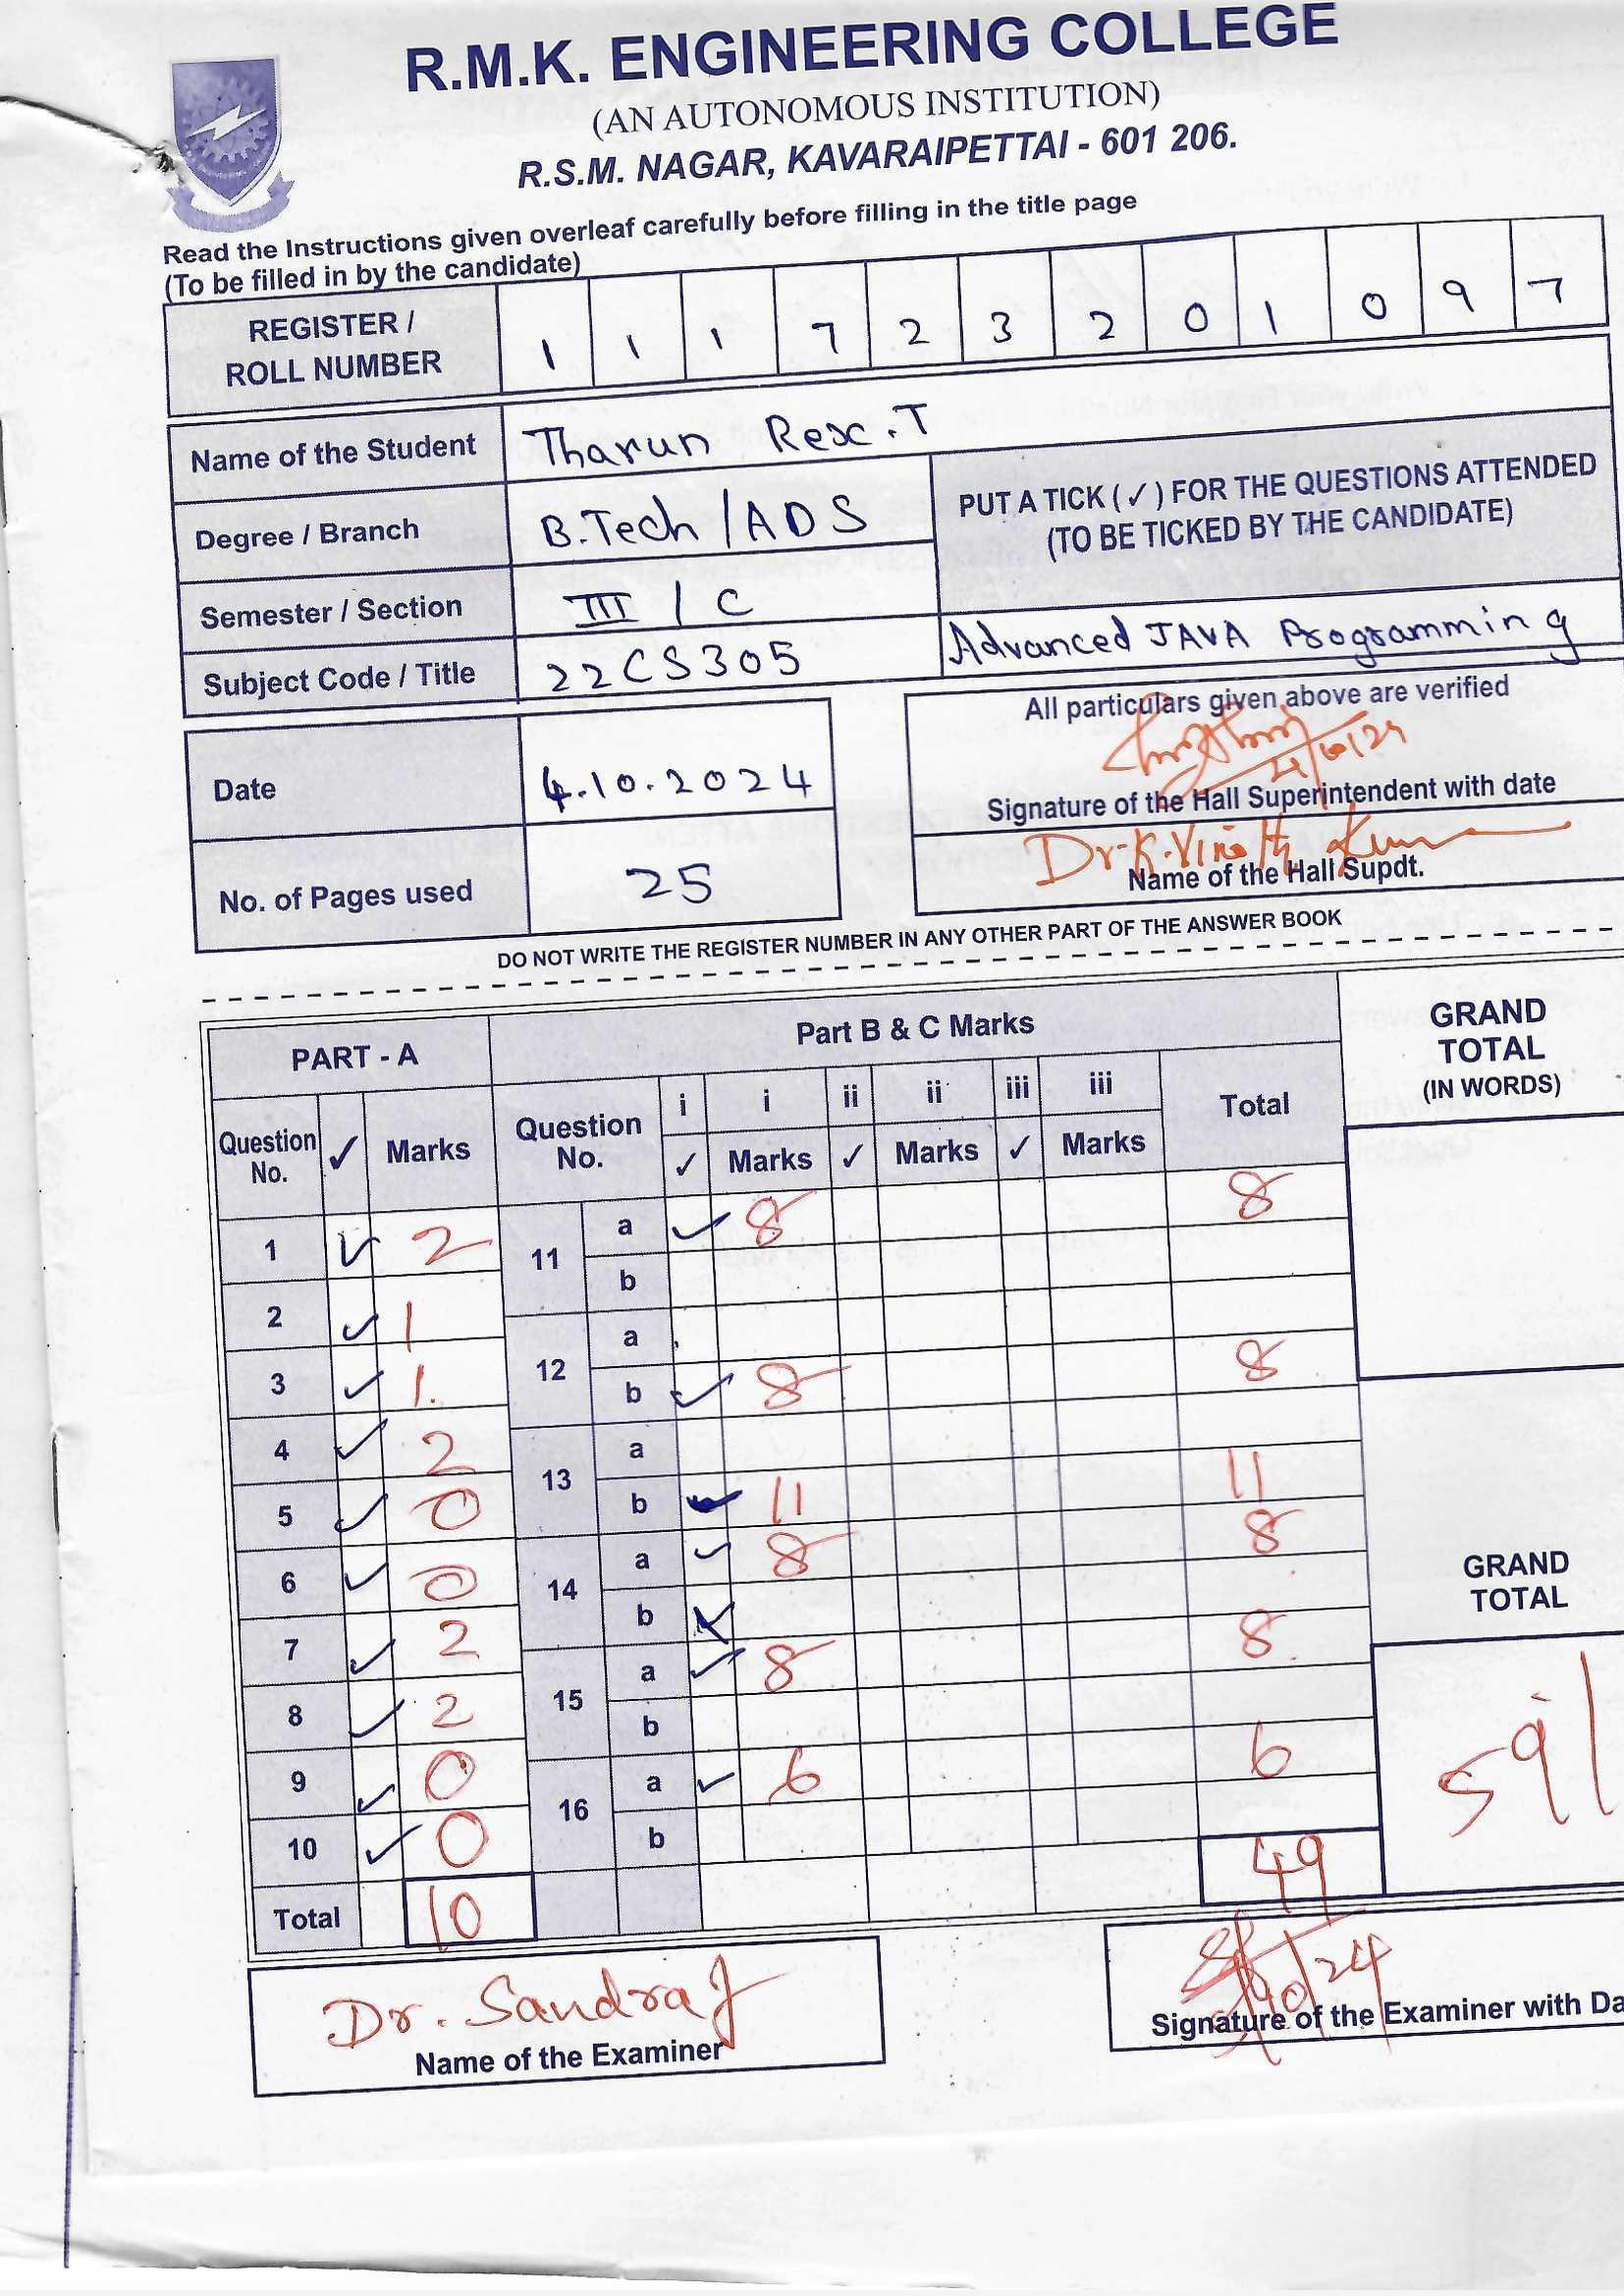 R.M.K. ENGINEERING COLLEGE
(AN AUTONOMOUS INSTITUTION)
R.S.M. NAGAR, KAVARAIPETTAI - 601 206.
Read the Instructions given overleaf carefully before filling in the title page
(To be filled in by the candidate)
REGISTER / ROLL NUMBER 1 1 1 7 2 3 2 0 1 0 9 7
Name of the Student Tharun Rex.T
Degree / Branch B.Tech / ADS
PUT A TICK (✓) FOR THE QUESTIONS ATTENDED
(TO BE TICKED BY THE CANDIDATE)
Semester / Section III / C
Subject Code / Title 22CS305 Advanced JAVA Programming
All particulars given above are verified
4/10/24
Date 4.10.2024
Signature of the Hall Superintendent with date
Dr-K.Vinoth Kumar
No. of Pages used 25
Name of the Hall Supdt.
DO NOT WRITE THE REGISTER NUMBER IN ANY OTHER PART OF THE ANSWER BOOK
PART - A
Part B & C Marks
GRAND
TOTAL
(IN WORDS)
Question No. ✓ Marks
Question No. i i ii ii iii iii Total
✓ Marks ✓ Marks ✓ Marks
1 ✓ 2
2 ✓ 1
3 ✓ 1.
4 ✓ 2
5 ✓ 0
6 ✓ 0
7 ✓ 2
8 ✓ 2
9 ✓ 0
10 ✓ 0
Total 10
11 a ✓ 8 8
b
12 a
b ✓ 8 8
13 a
b ✓ 11 11
14 a ✓ 8 8
b
15 a ✓ 8 8
b
16 a ✓ 6 6
b
49
GRAND
TOTAL
59
Dr. Sandra J
Name of the Examiner
Signature of the Examiner with Da